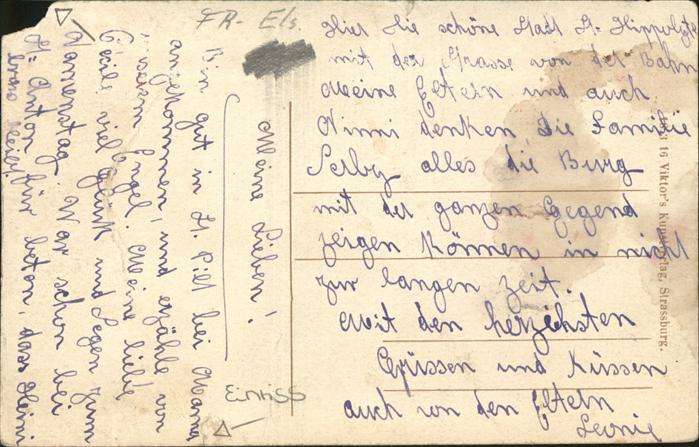 FR-Els
Meine Lieben!
Bin gut in St. Pilt bei Mama
angekommen, und erzähle von
unserm Engel. Meine liebe
Cecile viel Glück und Segen zum
Namenstag. War schon bei
St. Anton für beten, dass Heini
Einriss
Hier die schöne Stadt St. Hippolyte
mit der Strasse von der Bahn
Meine Eltern und auch
Ninni denken die Familie
alles die Burg
mit der ganzen Gegend
zeigen können in nicht
zur langen Zeit.
Mit den herzlichsten
Grüssen und Küssen
auch von den Eltern
Leonie
16 Viktor's Kunstverlag, Strassburg.